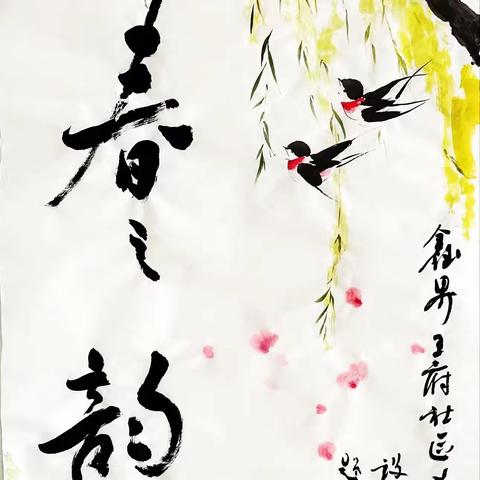 春之韵
鑫界王府社区
设
题